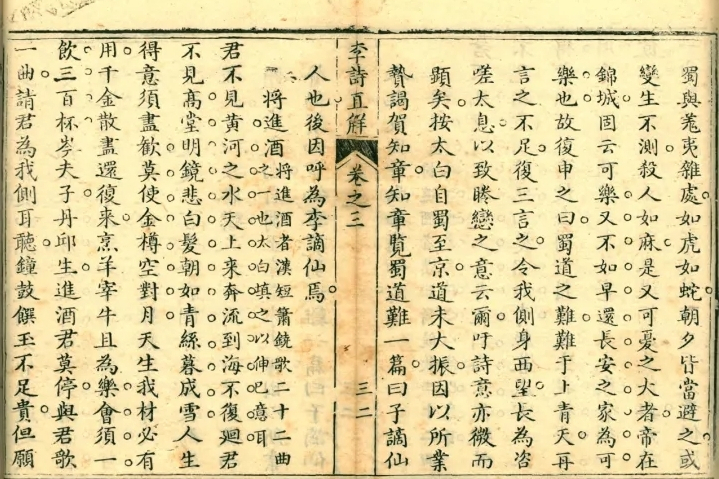 蜀與羗夷雜處如虎如蛇朝夕皆當避之或
變生不測殺人如麻是又可憂之大者帝在
錦城固云可樂又不如早還長安之家為可
樂也故復申之曰蜀道之難難于上青天再
言之不足復三言之令我側身西望長為咨
嗟太息以致睠戀之意云爾吁詩意亦微而
顯矣按太白自蜀至京道未大振因以所業
贄謁賀知章知章覽蜀道難一篇曰子謫仙
李詩直解
卷之三
三二
人也後因呼為李謫仙焉
將進酒
將進酒者漢短簫鐃歌二十二曲
之一也太白填之以伸己意耳
君不見黃河之水天上來奔流到海不復迴君
不見高堂明鏡悲白髮朝如青絲暮成雪人生
得意須盡歡莫使金樽空對月天生我材必有
用千金散盡還復來烹羊宰牛且為樂會須一
飲三百杯岑夫子丹邱生進酒君莫停與君歌
一曲請君為我側耳聽鐘鼓饌玉不足貴但願